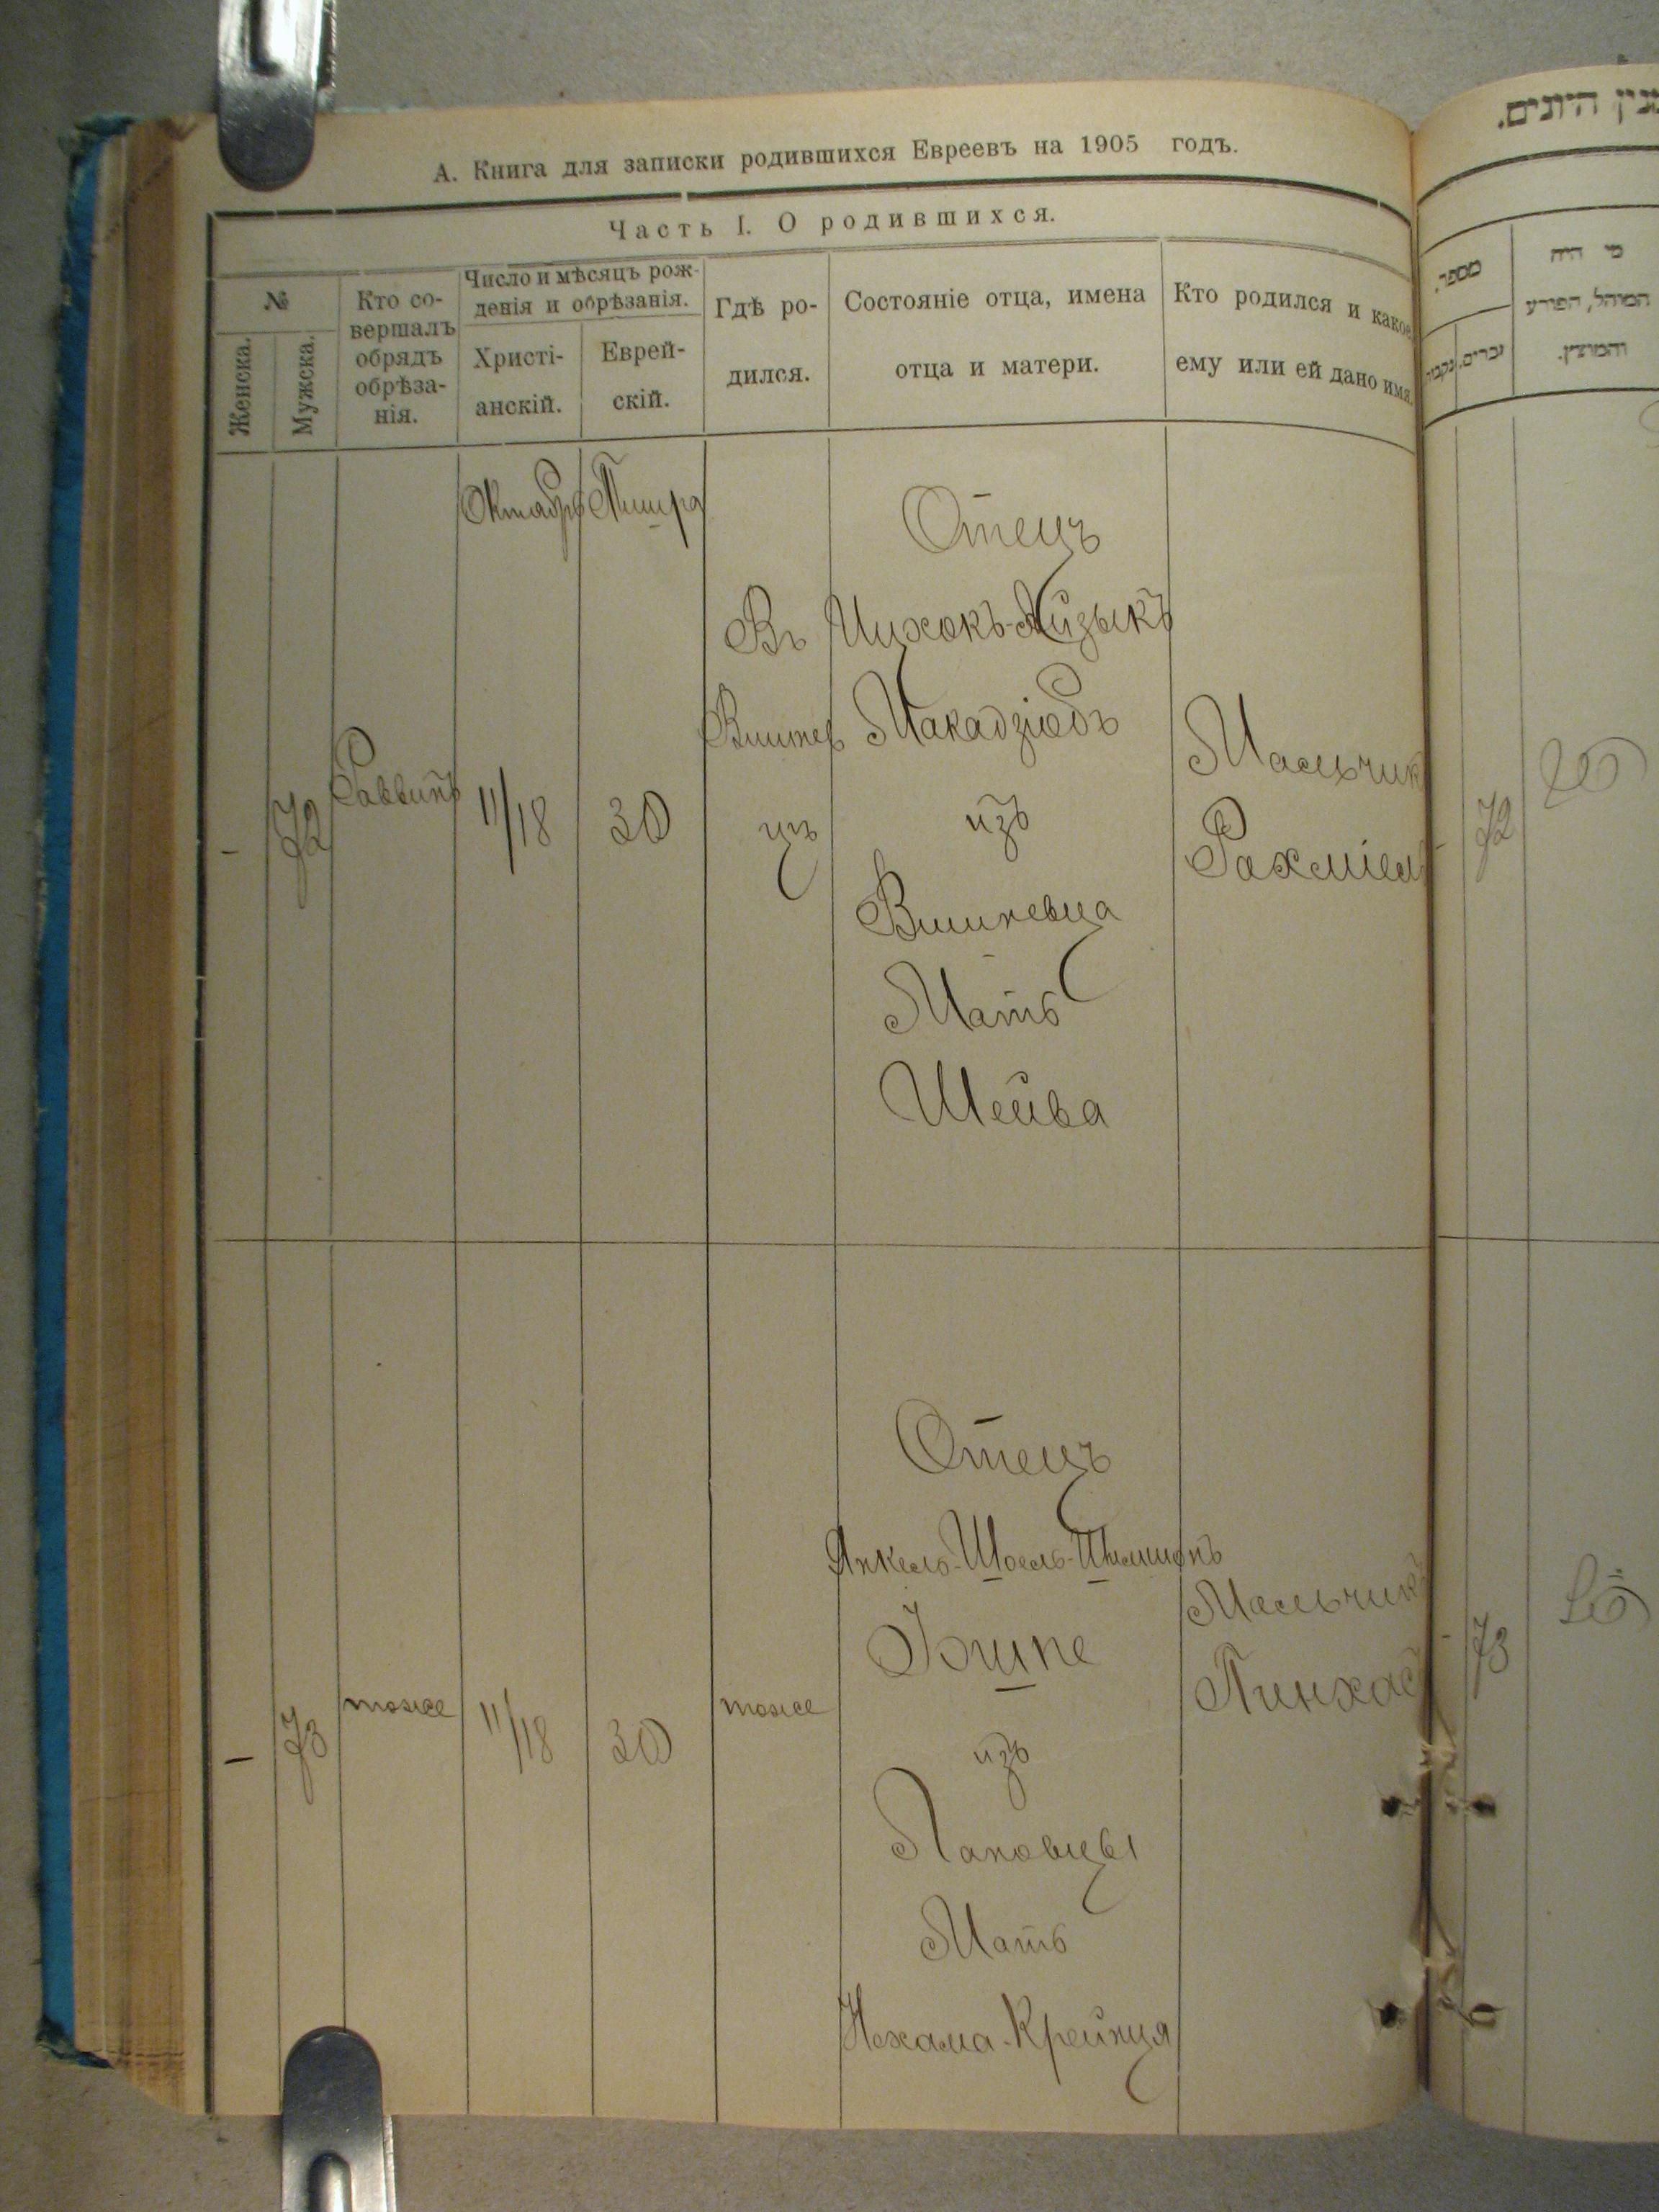 А. Книга для записки родившихся Евреевъ на 1905 годъ.
Часть I. О родившихся.
№
Женска.
Мужска.
Кто со-
вершалъ
обрядъ
обрѣза-
нія.
Число и мѣсяцъ рож-
денія и обрѣзанія.
Христі-
анскій.
Еврей-
скій.
Гдѣ ро-
дился.
Состояніе отца, имена
отца и матери.
Кто родился и какое
ему или ей дано имя.
Октябрь
Тишра
–
72
Раввинъ
11/18
30
Въ
Вишнев
цѣ
Отецъ
Ицхокъ-Айзыкъ
Макадзіобъ
изъ
Вишневца
Мать
Шейва
Мальчик
Рахміел
–
73
тоже
11/18
30
тоже
Отецъ
Янкель-Шоель-Шлиомъ
изъ
Лановцы
Мать
Нехама-Крейнця
Мальчикъ
Пинхас
היונים.
מספר.
זכרים.
מי היה
המוהל, הפורע
והמוצץ.
72
73